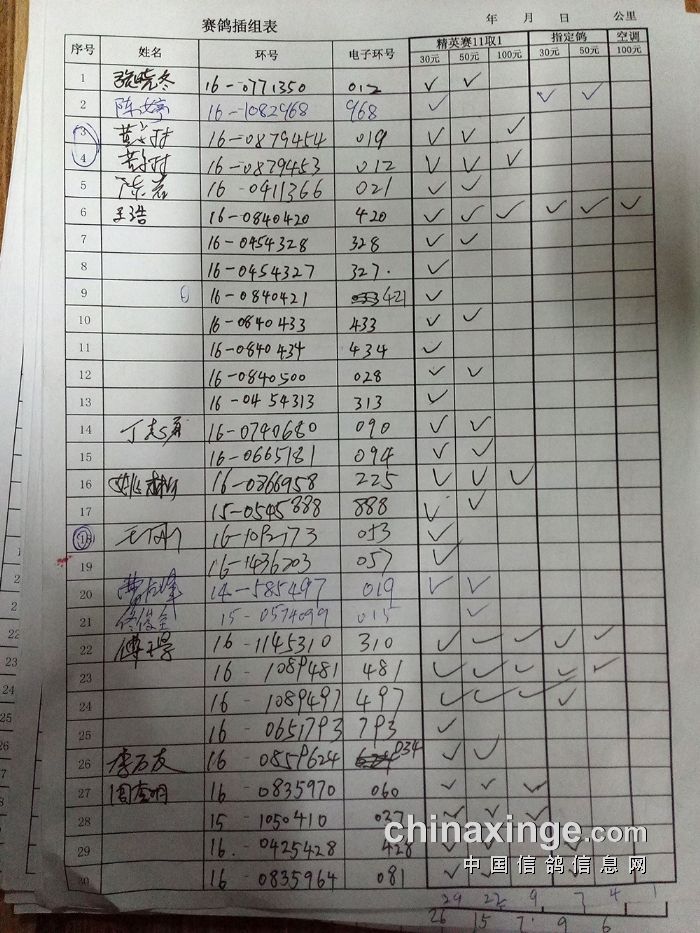 赛鸽插组表 年 月 日 公里
序号 姓名 环号 电子环号 精英赛11取1 指定鸽 空调
30元 50元 100元 30元 50元 100元
1 16-0771350 012 ✓ ✓
2 陈婷 16-1082968 968 ✓ ✓ ✓
3 16-0879454 019 ✓ ✓ ✓
4 16-0879453 012 ✓ ✓ ✓
5 16-0411366 021 ✓ ✓
6 王浩 16-0840420 420 ✓ ✓ ✓ ✓ ✓ ✓
7 16-0454328 328 ✓ ✓
8 16-0454327 327. ✓
9 16-0840421 421 ✓
10 16-0840433 433 ✓ ✓
11 16-0840434 434 ✓
12 16-0840500 028 ✓ ✓
13 16-0454313 313 ✓
14 16-0740680 090 ✓ ✓
15 16-0665181 094 ✓ ✓
16 16-0366958 225 ✓ ✓ ✓
17 15-0545888 888 ✓ ✓
18 16-1092173 053 ✓
19 16-1436203 057 ✓
20 14-585497 019 ✓ ✓
21 15-0574099 015 ✓
22 16-1145310 310 ✓ ✓ ✓ ✓ ✓
23 16-1089481 481 ✓ ✓ ✓ ✓ ✓
24 16-1089497 497 ✓ ✓ ✓ ✓
25 16-0651793 793 ✓
26 李万友 16-0859624 034 ✓ ✓
27 16-0835970 060 ✓ ✓ ✓
28 15-1050410 037 ✓ ✓ ✓
29 16.-0425428 428 ✓ ✓ ✓
30 16-0835964 081 ✓ ✓ ✓ ✓
chinaxinge.com
中国信鸽信息网
29 22 9 7 4 1
26 15 7 9 6